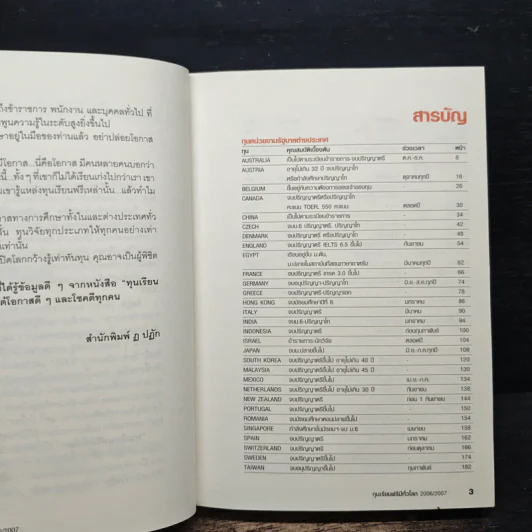 ถึงข้าราชการ พนักงาน และบุคคลทั่วไป ที่
พูนความรู้ในระดับสูงยิ่งขึ้นไป
อยู่ในมือของท่านแล้ว อย่าปล่อยโอกาส
มีโอกาส...นี่คือโอกาส มีคนหลายคนบอกว่า
ทั้งๆ ที่เขาก็ไม่ได้เรียนเก่งไปกว่าเรา เขา
เขารู้แหล่งทุนเรียนฟรีเหล่านั้น...แล้วทำไม
าสทางการศึกษาทั้งในและต่างประเทศทั่ว
ั้น ทุนวิจัยทุกประเภทให้ทุกคนอย่างเท่า
เท่านั้น
ปิดโลกกว้างรู้เท่าทันทุน คุณอาจเป็นผู้พิชิต
ได้รู้ข้อมูลดี ๆ จากหนังสือ "ทุนเรียน
ได้โอกาสดี ๆ และโชคดีทุกคน
สำนักพิมพ์ ฎ ปฏัก
/2007
สารบัญ
ทุนหน่วยงานรัฐบาลต่างประเทศ
ทุน คุณสมบัติเบื้องต้น ช่วงเวลา หน้า
AUSTRALIA เป็นไปตามระเบียบข้าราชการ-จบปริญญาตรี ต.ค.-ธ.ค. 8
AUSTRIA อายุไม่เกิน 32 ปี จบปริญญาโท
หรือกำลังศึกษาปริญญาโท ตุลาคมทุกปี 16
BELGIUM ขึ้นอยู่กับความต้องการของเจ้าของทุน - 26
CANADA จบปริญญาตรีหรือปริญญาโท
คะแนน TOEFL 550 คะแนน ตลอดปี 30
CHINA เป็นไปตามระเบียบข้าราชการ - 34
CZECH จบม.6 ปริญญาตรี, ปริญญาโท - 42
DENMARK จบปริญญาตรี หรือปริญญาโท - 45
ENGLAND จบปริญญาตรี IELTS 6.5 ขึ้นไป กันยายน 54
EGYPT เรียนอยู่ชั้น ม.ต้น,
ม.ปลายในสถาบันที่สอนภาษาอาหรับ มีนาคมทุกปี 62
FRANCE จบปริญญาตรี เกรด 3.0 ขึ้นไป - 66
GERMANY จบอนุปริญญา-ปริญญาโท มิ.ย.-ส.ค.ทุกปี 74
GREECE จบปริญญาตรี-ปริญญาเอก - 78
HONG KONG จบมัธยมศึกษาปีที่ 6 มกราคม 86
ITALY จบปริญญาตรี มีนาคม 90
INDIA จบม.6-ปริญญาโท มกราคม 94
INDONESIA จบปริญญาตรี ก่อนกุมภาพันธ์ 100
ISRAEL ข้าราชการ-นักวิจัย ตลอดปี 104
JAPAN จบม.ปลายขึ้นไป มิ.ย.-ก.ค.ทุกปี 108
SOUTH KOREA จบปริญญาตรีขึ้นไป อายุไม่เกิน 40 ปี - 120
MALAYSIA จบปริญญาตรีขึ้นไป อายุไม่เกิน 45 ปี - 130
MEXICO จบปริญญาตรีขึ้นไป เม.ย.-ก.ค. 134
NETHERLANDS จบปริญญาตรีขึ้นไป อายุไม่เกิน 30 ปี กันยายน 138
NEW ZEALAND จบปริญญาตรี ก่อน 1 กันยายน 144
PORTUGAL จบปริญญาตรีขึ้นไป - 150
ROMANIA จบมัธยมศึกษาตอนปลายขึ้นไป - 154
SINGAPORE กำลังศึกษาชั้นมัธยมฯ-จบ ม.6 เมษายน 158
SPAIN จบปริญญาตรี มกราคม 162
SWITZERLAND จบปริญญาตรีขึ้นไป ก่อนตุลาคม 166
SWEDEN จบปริญญาตรีขึ้นไป - 174
TAIWAN จบอนุปริญญาขึ้นไป กุมภาพันธ์ 182
ทุนเรียนฟรีมีทั่วโลก 2006/2007 3